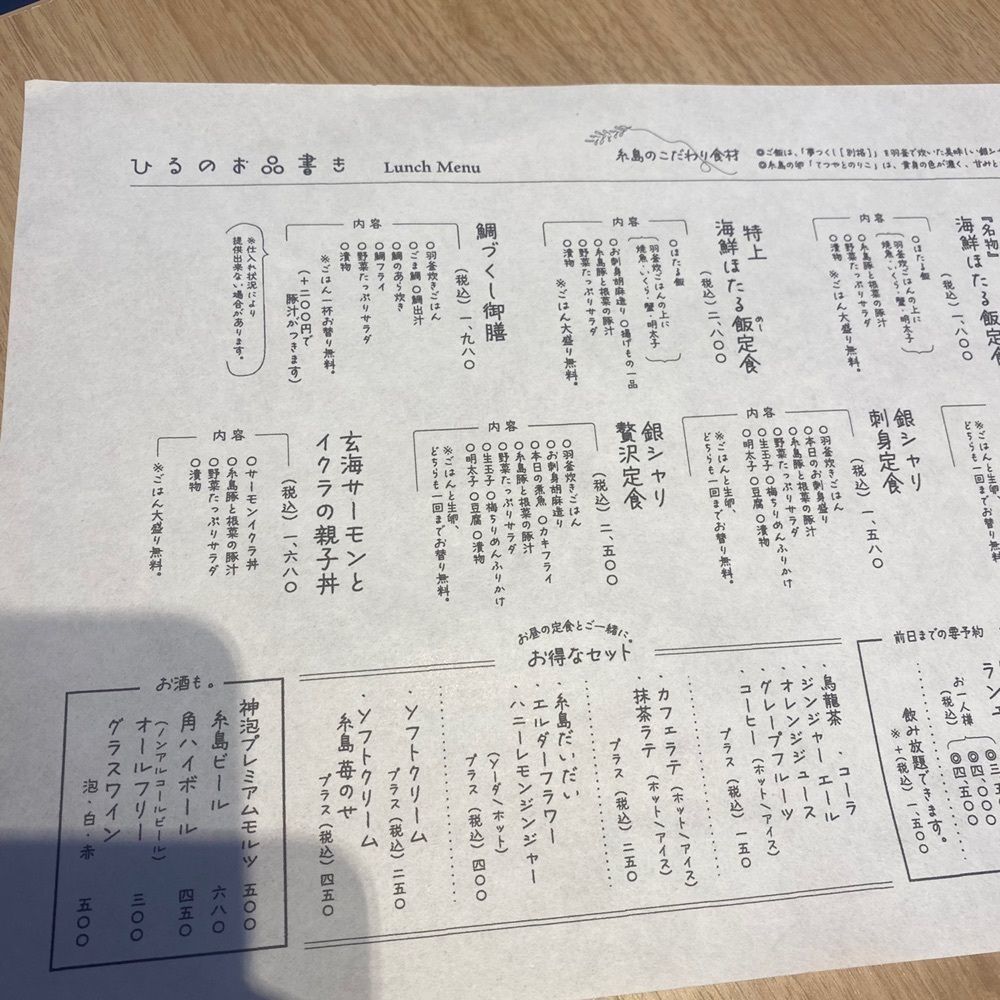 ひるのお品書き Lunch Menu
糸島のこだわり食材
◎ご飯は、「夢つくし[別格]」を羽釜で炊いた美味しい銀シャ
◎糸島の卵「てつやとのりこ」は、黄身の色が濃く、甘みと
『名物』
海鮮ほたる飯定食
(税込) 一、八〇〇
内容
○ほたる飯
羽釜炊ごはんの上に
焼魚・いくら・蟹・明太子
○糸島豚と根菜の豚汁
○野菜たっぷりサラダ
○漬物
※ごはん大盛り無料。
特上
海鮮ほたる飯定食
めし
(税込) 二、八〇〇
内容
○ほたる飯
羽釜炊ごはんの上に
焼魚・いくら・蟹・明太子
○お刺身胡麻造り ○揚げもの一品
○糸島豚と根菜の豚汁
○野菜たっぷりサラダ
○漬物 ※ごはん大盛り無料。
鯛づくし御膳
(税込) 一、九八〇
内容
○羽釜炊きごはん
○ごま鯛 ○鯛出汁
○鯛のあら炊き
○鯛フライ
○野菜たっぷりサラダ
○漬物
※ごはん一杯お替り無料。
(+二〇〇円で
豚汁がつきます)
※仕入れ状況により
提供出来ない場合があります。
内容
※ごはんと生卵、
どちらも一回までお替り無料。
銀シャリ
刺身定食
(税込) 一、五八〇
内容
○羽釜炊きごはん
○本日のお刺身盛り
○糸島豚と根菜の豚汁
○野菜たっぷりサラダ
○生玉子 ○梅ちりめんふりかけ
○明太子 ○豆腐 ○漬物
※ごはんと生卵、
どちらも一回までお替り無料。
銀シャリ
贅沢定食
(税込) 二、五〇〇
内容
○羽釜炊きごはん
○お刺身胡麻造り
○本日の煮魚 ○カキフライ
○糸島豚と根菜の豚汁
○野菜たっぷりサラダ
○生玉子 ○梅ちりめんふりかけ
○明太子 ○豆腐 ○漬物
※ごはんと生卵、
どちらも一回までお替り無料。
玄海サーモンと
イクラの親子丼
(税込) 一、六八〇
内容
○サーモンイクラ丼
○糸島豚と根菜の豚汁
○野菜たっぷりサラダ
○漬物
※ごはん大盛り無料。
前日までの要予約
お一人様
(税込)
◎四、〇〇〇
◎四、五〇〇
飲み放題できます。
※+(税込)一、五〇〇
お昼の定食とご一緒に。
お得なセット
・烏龍茶 ・コーラ
・ジンジャーエール
・オレンジジュース
・グレープフルーツ
・コーヒー (ホット/アイス)
プラス (税込) 一五〇
・カフェラテ (ホット/アイス)
・抹茶ラテ (ホット/アイス)
プラス (税込) 二五〇
・糸島だいだい
・エルダーフラワー
・ハニーレモンジンジャー
(ソーダ/ホット)
プラス (税込) 四〇〇
・ソフトクリーム
プラス (税込) 二五〇
・ソフトクリーム
糸島苺のせ
プラス (税込) 四五〇
お酒も。
神泡プレミアムモルツ 五〇〇
糸島ビール 六八〇
角ハイボール 四五〇
(ノンアルコールビール)
オールフリー 三〇〇
グラスワイン
泡・白・赤 五〇〇